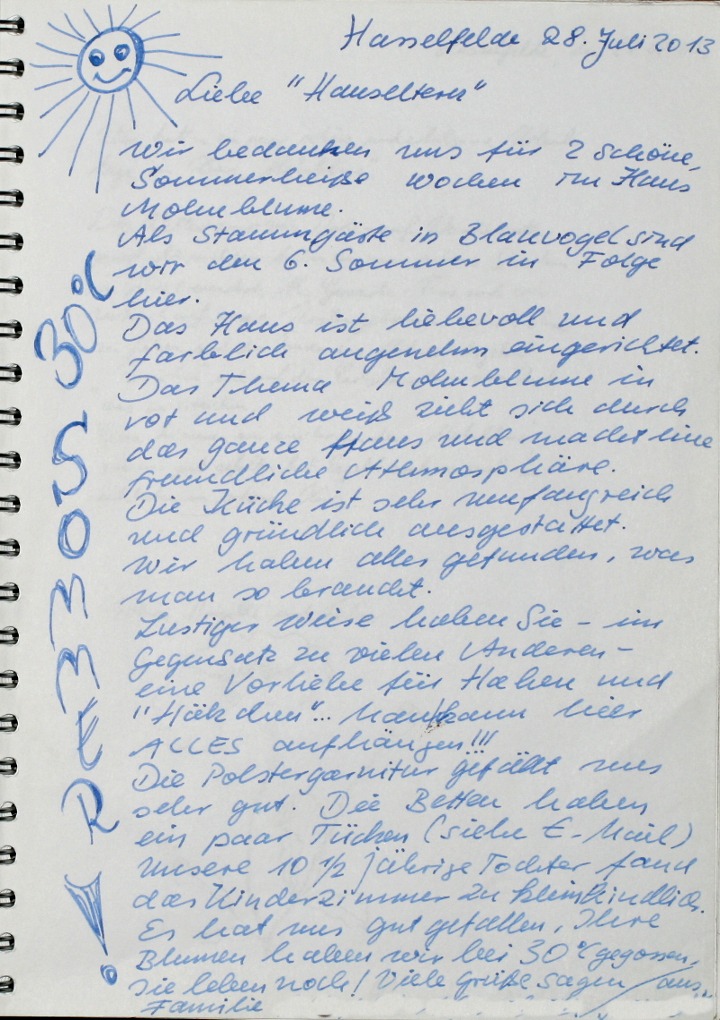 Hasselfelde 28. Juli 2013
Liebe "Hauseltern"
Wir bedanken uns für 2 schöne,
Sommerheiße Wochen im Haus
Mohnblume.
Als Stammgäste in Blauvogel sind
wir den 6. Sommer in Folge
hier.
Das Haus ist liebevoll und
farblich angenehm eingerichtet.
Das Thema Mohnblume in
rot und weiß zieht sich durch
das ganze Haus und macht eine
freundliche Athmosphäre.
Die Küche ist sehr umfangreich
und gründlich ausgestattet.
Wir haben alles gefunden, was
man so braucht.
Lustiger Weise haben Sie - im
Gegensatz zu vielen Anderen -
eine Vorliebe für Haken und
"Häkchen"... Man kann hier
ALLES aufhängen!!!
Die Polstergarnitur gefällt uns
sehr gut. Die Betten haben
ein paar Tücken (siehe E-Mail)
Unsere 10 1/2 jährige Tochter fand
das Kinderzimmer zu kleinkindlich.
Es hat uns gut gefallen, Ihre
Blumen haben wir bei 30°C gegossen,
sie leben noch! Viele Grüße sagen aus
Familie
30°C